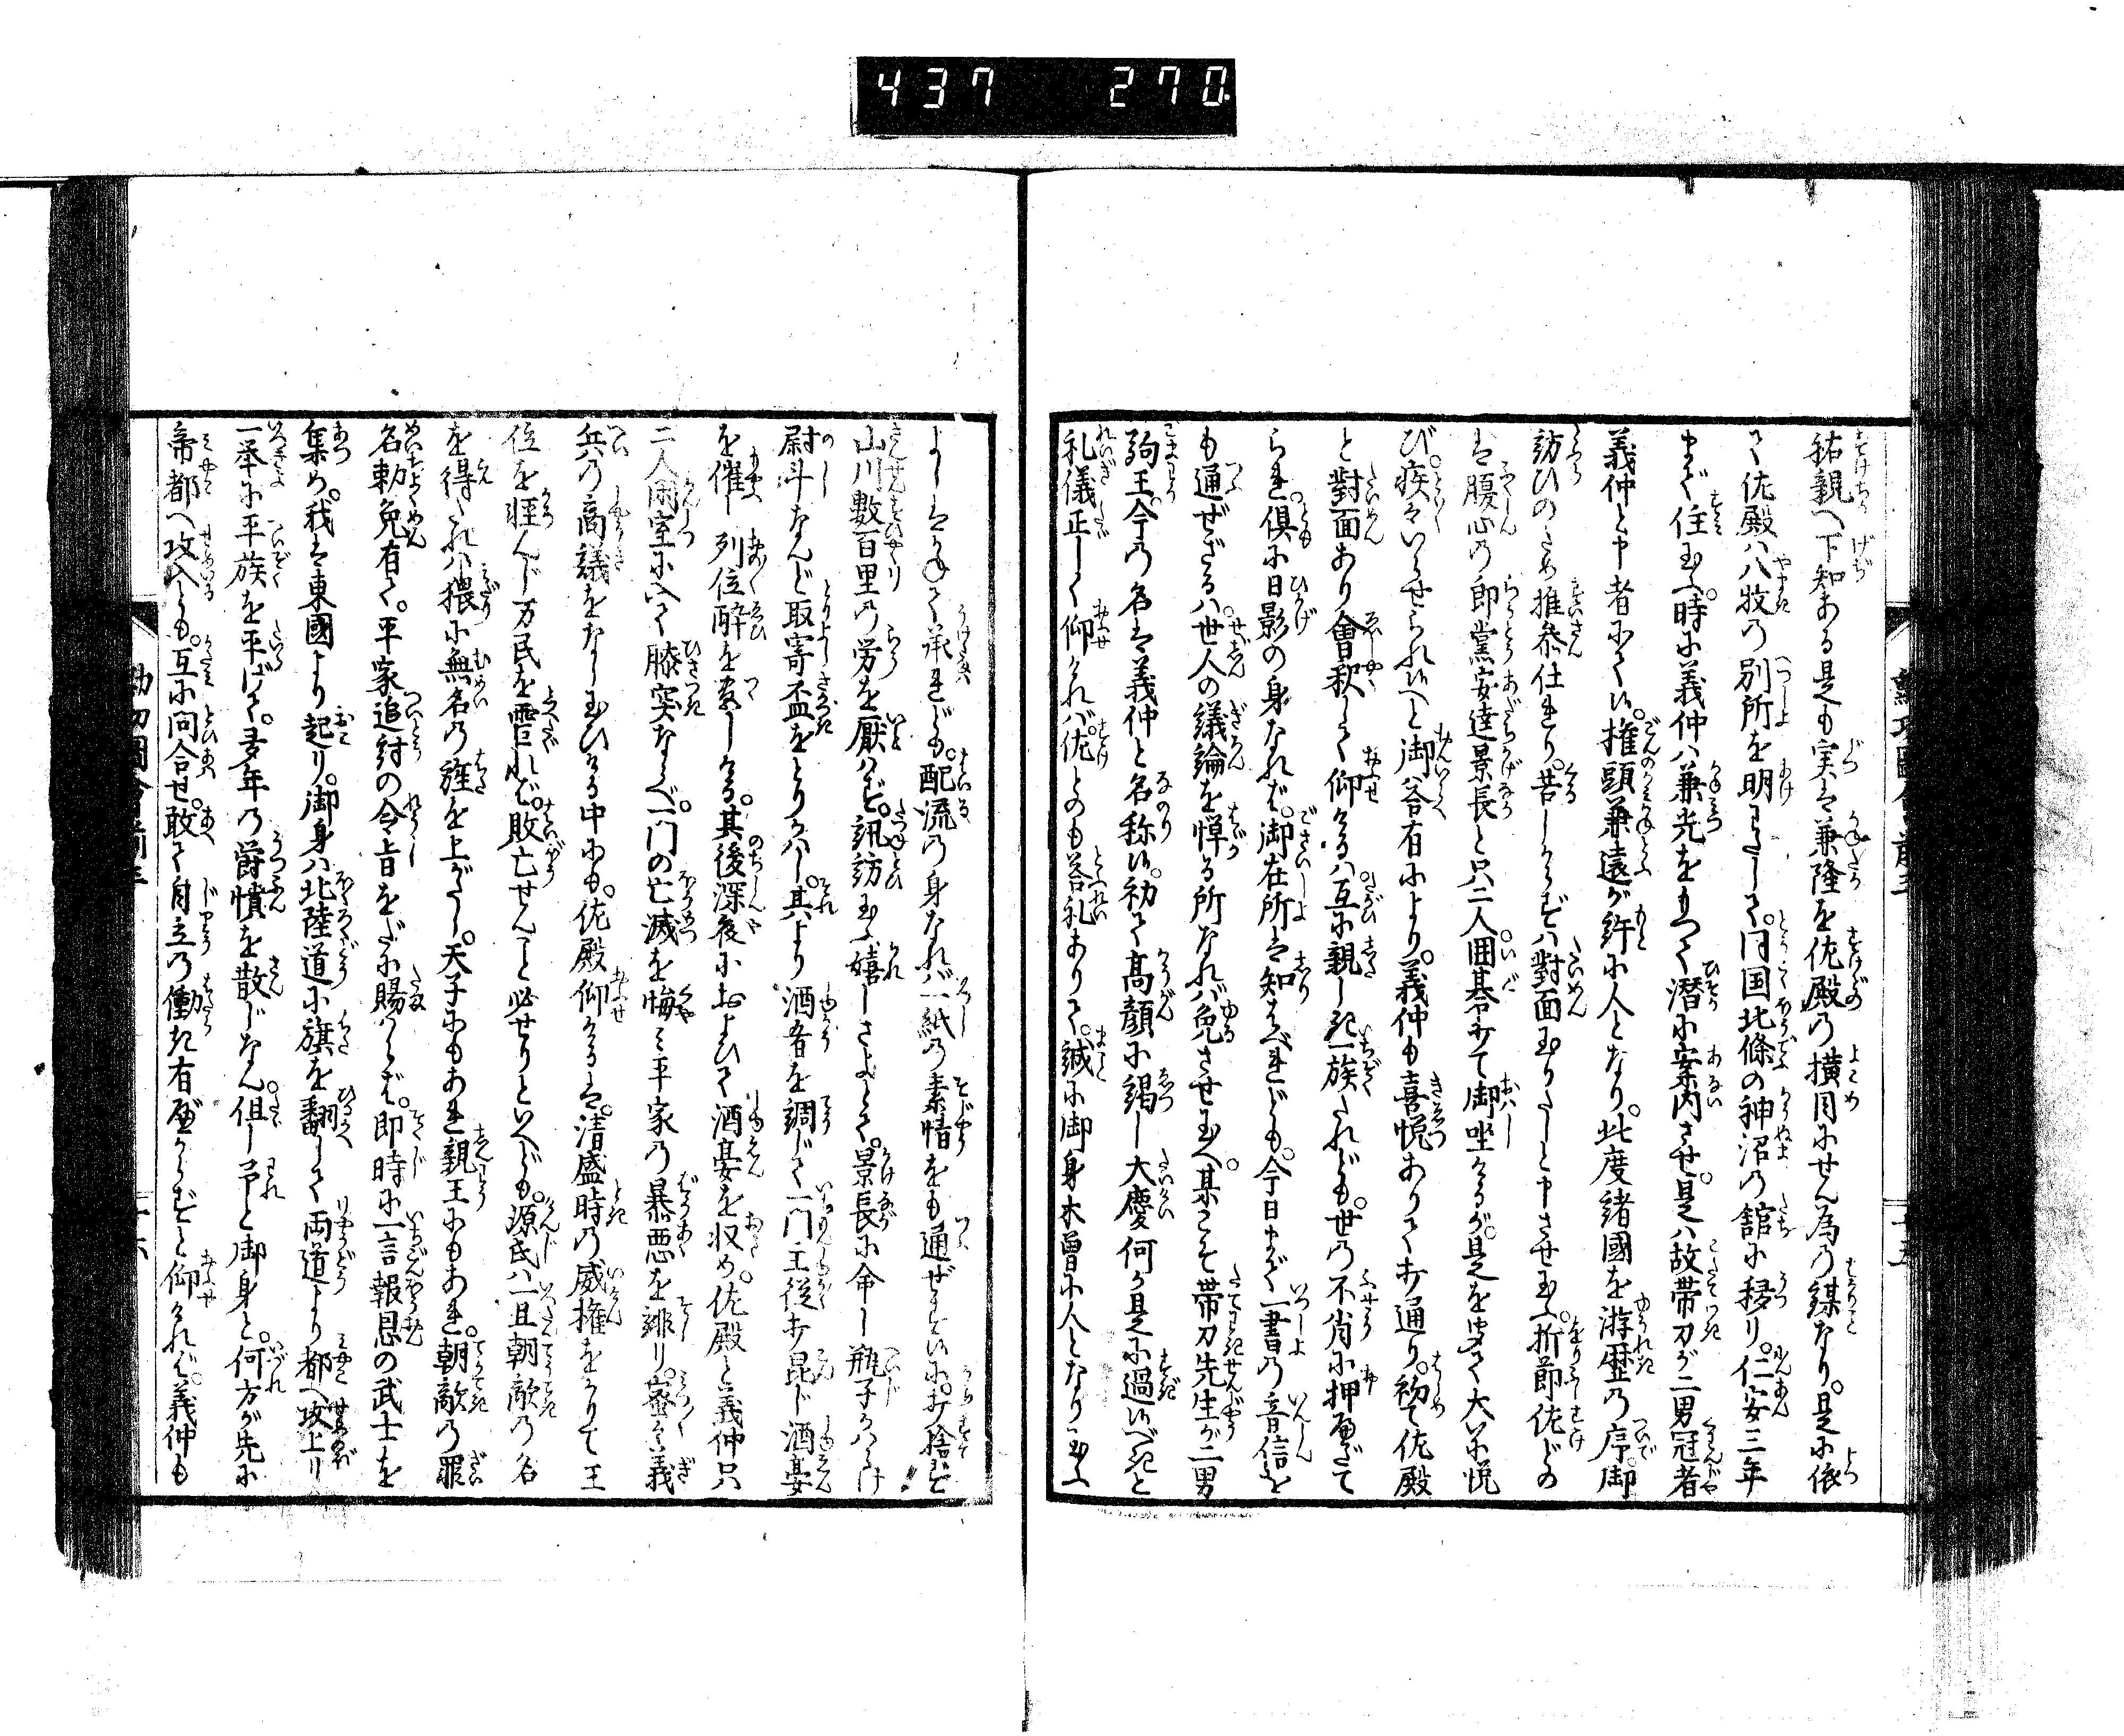 437 270
祐親へ下知ある是も実は兼隆を佐殿の横目にせん為の謀なり。是に依
て佐殿ハ八牧の別所を明わたして。同国北條の神沼の舘に移り。仁安三年
まで住玉へり。時に義仲ハ兼光をもつて潜に案内させ。是ハ故帯刀が二男冠者
義仲と申者にて候。権頭兼遠が許に人となり。此度諸國を游歴の序。御
訪ひのため推参仕れり。苦しからずハ對面玉りたしと申させ玉ふ。折節佐どの
は腹心の郎黨安達景長と只二人囲碁打て御坐けるが。是を聞て大に悦
び。疾はいらせられ候へと御答有により。義仲も喜悦ありて打通り。初て佐殿
と對面あり會釈して仰けるハ互に親しき一族たれども。世の不肖に押へだて
られ。倶に日影の身なれば。御在所は知るべけれども。今日まで一書の音信を
も通ぜざるハ。世人の議論を憚る所なれバ免させ玉へ。某こそ帯刀先生が二男
駒王。今の名は義仲と名称候。初て高顔に謁し大慶何か是に過候べきと
礼儀正しく仰けれバ。佐どのも答礼ありて。誠に御身木曽に人となり玉ふ
よしはかねて承れども。配流の身なれバ一紙の素情をも通ぜず候に。打捨ず
山川數百里の労を厭ハず。訊訪玉ふ嬉しさよとて。景長に命し瓶子かハらけ
尉斗なんど取寄盃をとりかハし。其より酒肴を調じて一門主従打昆じ酒宴
を催し列位酔を尽しける。其後深夜におよひて酒宴を収め。佐殿と義仲只
二人閑室に入て膝突ならべ。一門の亡滅を悔ミ平家の暴悪を誹り。蜜々義
兵の商議をなし玉ひける中にも。佐殿仰けるは。清盛時の威權をかりて王
位を軽んじ万民を虐れば。敗亡せんこと必せりといへども。源氏ハ一旦朝敵の名
を得たれハ猥に無名の旌を上がたし。天子にもあれ親王にもあれ。朝敵の罪
名勅免有て。平家追討の令旨をだに賜ハらば。即時に一言報恩の武士を
集め。我は東國より起り。御身ハ北陸道に旗を翻して両道より都へ攻上り
一挙に平族を平げて。多年の欝憤を散じなん。但し予と御身と。何方が先に
帝都へ攻入とも。互に問合せ。敢て自立の働き有べからずと仰けれバ。義仲も